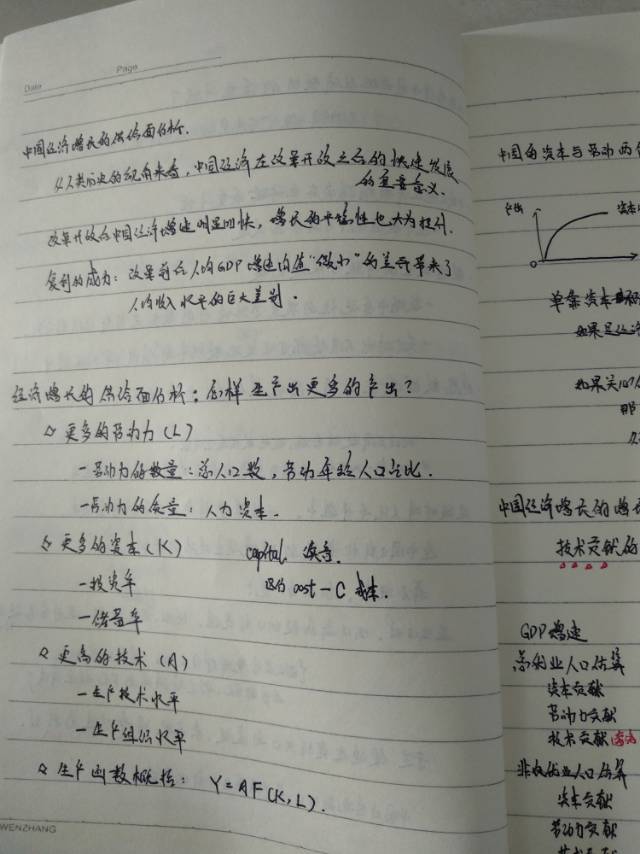 Date
Page
中国经济增长的供给面分析.
从人类历史的视角来看,中国经济在改革开放之后的快速发展
的重要意义.
改革开放后中国经济增速明显加快,增长的平稳性也大为提升.
复利的威力:改革前后人均GDP增速均值"微小"的差异带来了
人均收入水平的巨大差别.
经济增长的供给面分析:怎样生产出更多的产出?
更多的劳动力(L)
-劳动力的数量:总人口数,劳动年龄人口占比.
-劳动力的质量:人力资本.
更多的资本(K) capital
区分 cost-C 成本.
-投资率
-储蓄率
更高的技术(A)
-生产技术水平
-生产组织水平
生产函数概括: Y=AF(K,L).
WENZHANG
中国的资本与劳动两
产出
资本
0
单靠资本
如果是经济
如果
那
中国经济增长的增长
技术贡献的
GDP增速
总就业人口估算
资本贡献
劳动力贡献
技术贡献
非农就业人口估算
资本贡献
劳动力贡献
技术贡献